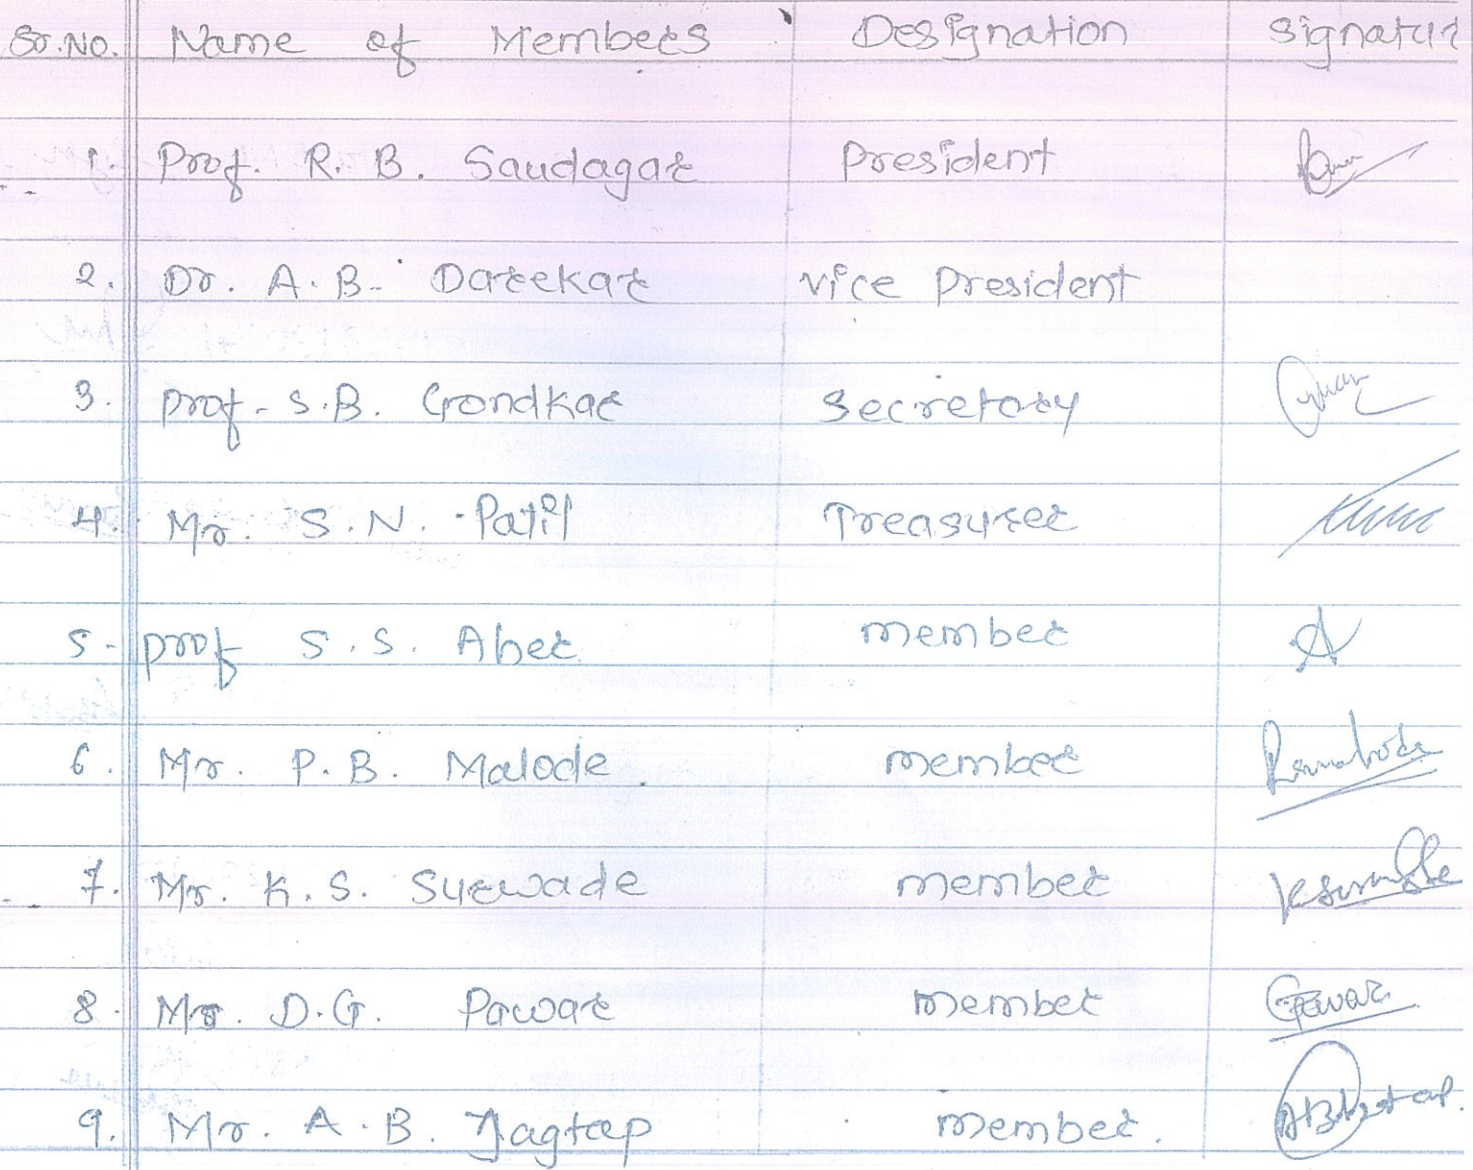 Sr.No. Name of Members Designation Signatur
1. Prof. R. B. Saudagar President
2. Dr. A. B. Darekar vice President
3. Prof. S.B. Gondkar Secretory
4. Mr. S.N. Patil Treasurer
5. prof S.S. Aher member
6. Mr. P.B. Malode member
7. Mr. K.S. Surwade member
8. Mr. D.G. Pawar member
9. Mr. A.B. Jagtap member.